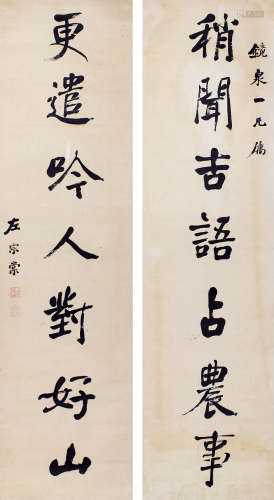 鏡泉一兄屬
稍聞吉語占農事
更遣吟人對好山
左宗棠